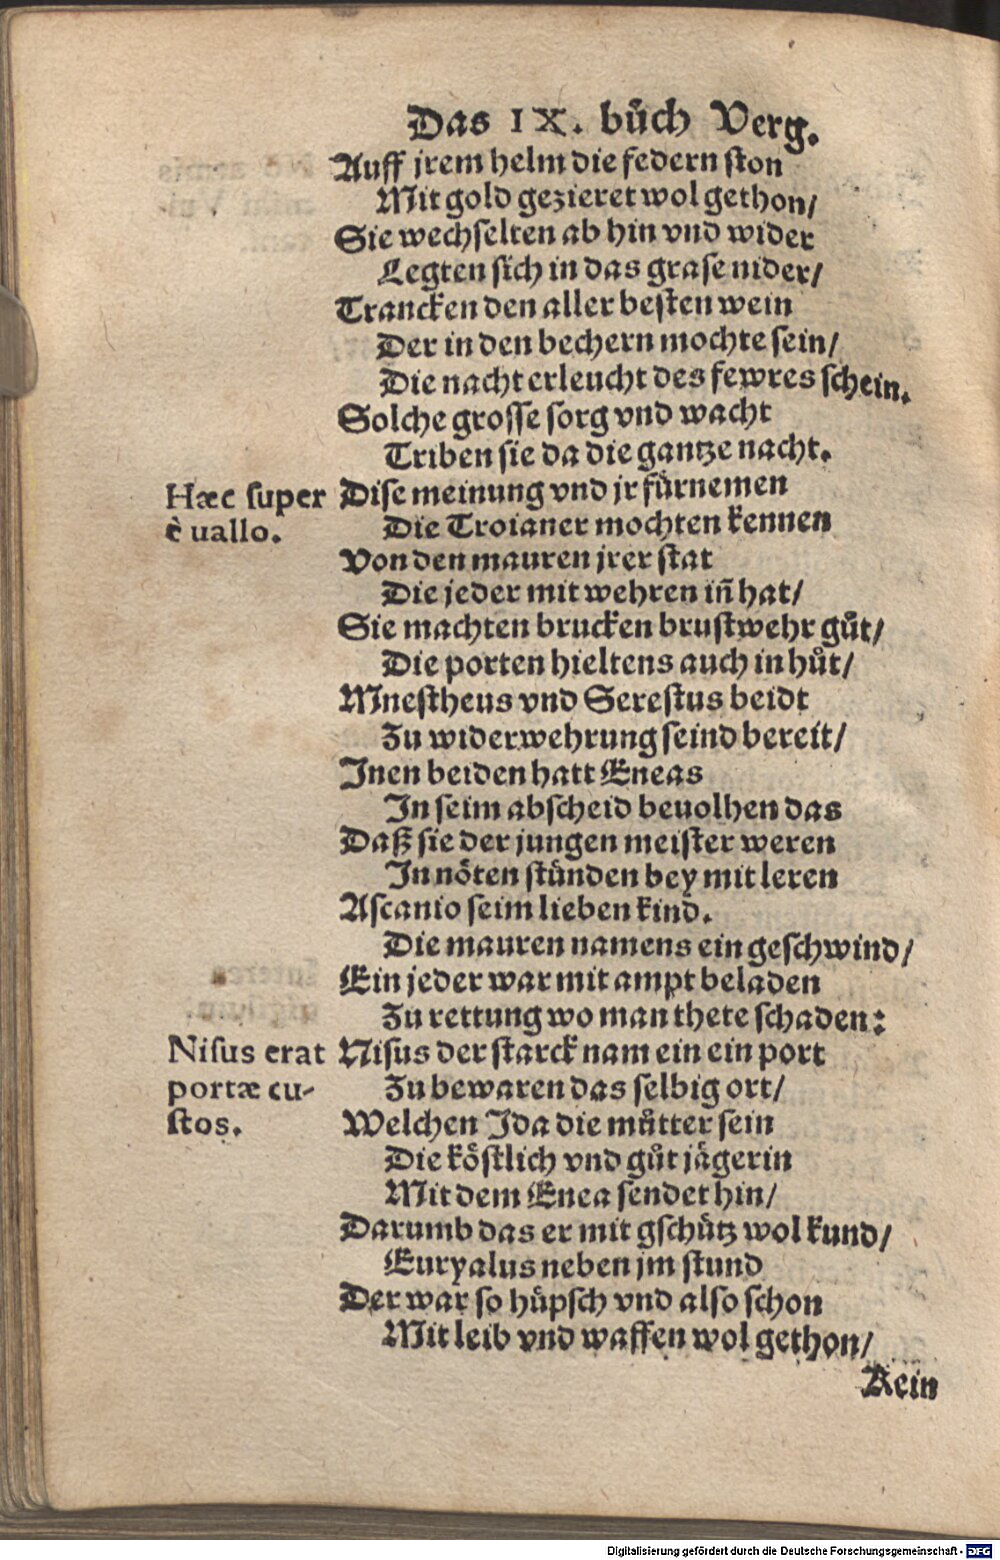 Das IX. bůch Verg.
Auff jrem helm die federn ston
Mit gold gezieret wol gethon/
Sie wechselten ab hin vnd wider
Legten sich in das grase nider/
Trancken den aller besten wein
Der in den bechern mochte sein/
Die nacht erleucht des fewres schein.
Solche grosse sorg vnd wacht
Triben sie da die gantze nacht.
Hæc super
è uallo.
Dise meinung vnd jr fürnemen
Die Troianer mochten kennen
Von den mauren jrer stat
Die jeder mit wehren iñ hat/
Sie machten brucken brustwehr gůt/
Die porten hieltens auch in hůt/
Mnestheus vnd Serestus beidt
Zu widerwehrung seind bereit/
Jnen beiden hatt Eneas
Jn seim abscheid beuolhen das
Daß sie der jungen meister weren
Jn nöten stünden bey mit leren
Ascanio seim lieben kind.
Die mauren namens ein geschwind/
Ein jeder war mit ampt beladen
Zu rettung wo man thete schaden:
Nisus erat
portæ cu-
stos.
Nisus der starck nam ein ein port
Zu bewaren das selbig ort/
Welchen Jda die můtter sein
Die köstlich vnd gůt jägerin
Mit dem Enea sendet hin/
Darumb das er mit gschütz wol kund/
Euryalus neben jm stund
Der war so hüpsch vnd also schon
Mit leib vnd waffen wol gethon/
Kein
Digitalisierung gefördert durch die Deutsche Forschungsgemeinschaft - DFG